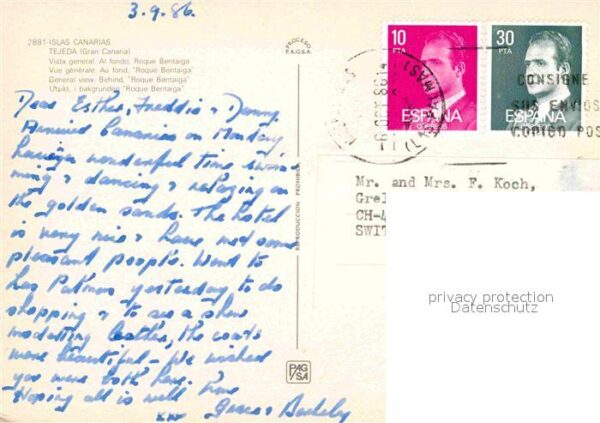 3.9.86.
2881-ISLAS CANARIAS
TEJEDA (Gran Canaria)
Vista general. Al fondo, Roque Bentaiga
Vue générale. Au fond, "Roque Bentaiga"
General view. Behind, "Roque Bentaiga"
Utsikt, i bakgrunden "Roque Bentaiga"
Dear Esther, Freddie & Danny
Arrived Canarias on Monday
having wonderful time swim
ming & dancing & relaxing on
the golden sands. The hotel
is very nice & have met some
pleasant people. Went to
Las Palmas yesterday to do
shopping & to see a show
modelling leather, the coats
were beautiful - We wished
you were both here.
Hoping all is well
PROCESO
P.A.G.S.A.
REPRODUCCION PROHIBIDA
PAG
/SA
10
PTA
ESPAÑA
CORREOS
30
PTA
ESPAÑA
CONSIGNE
SUS ENVIOS
CODIGO POS
Mr. and Mrs. F. Koch,
Grel
CH-4
SWIT
privacy protection
Datenschutz